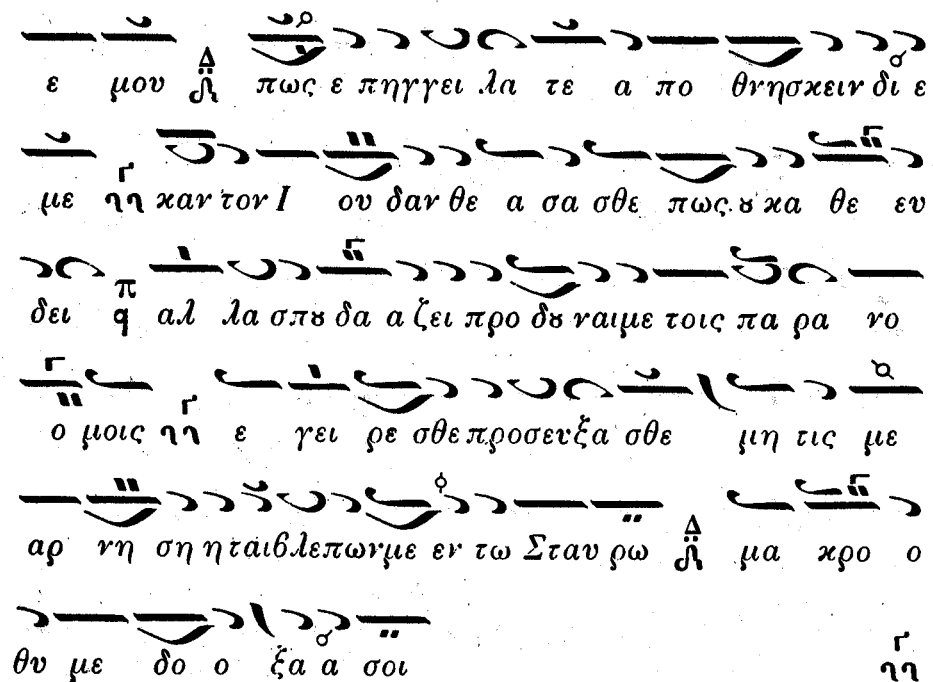 ε μου Δ πως ε πηγγει λα τε α πο θνησκειν δι ε
με Γ καν τον Ι ου δαν θε α σα σθε πως ȣ κα θε ευ
δει π q αλ λα σπȣ δα α ζει προ δȣ ναι με τοις πα ρα νο
ο μοις Γ ε γει ρε σθε προσευξα σθε μη τις με
αρ νη ση η ται βλεπων με εν τω Σταυ ρω Δ μα κρο ο
θυ με δο ο ξα α σοι Γ